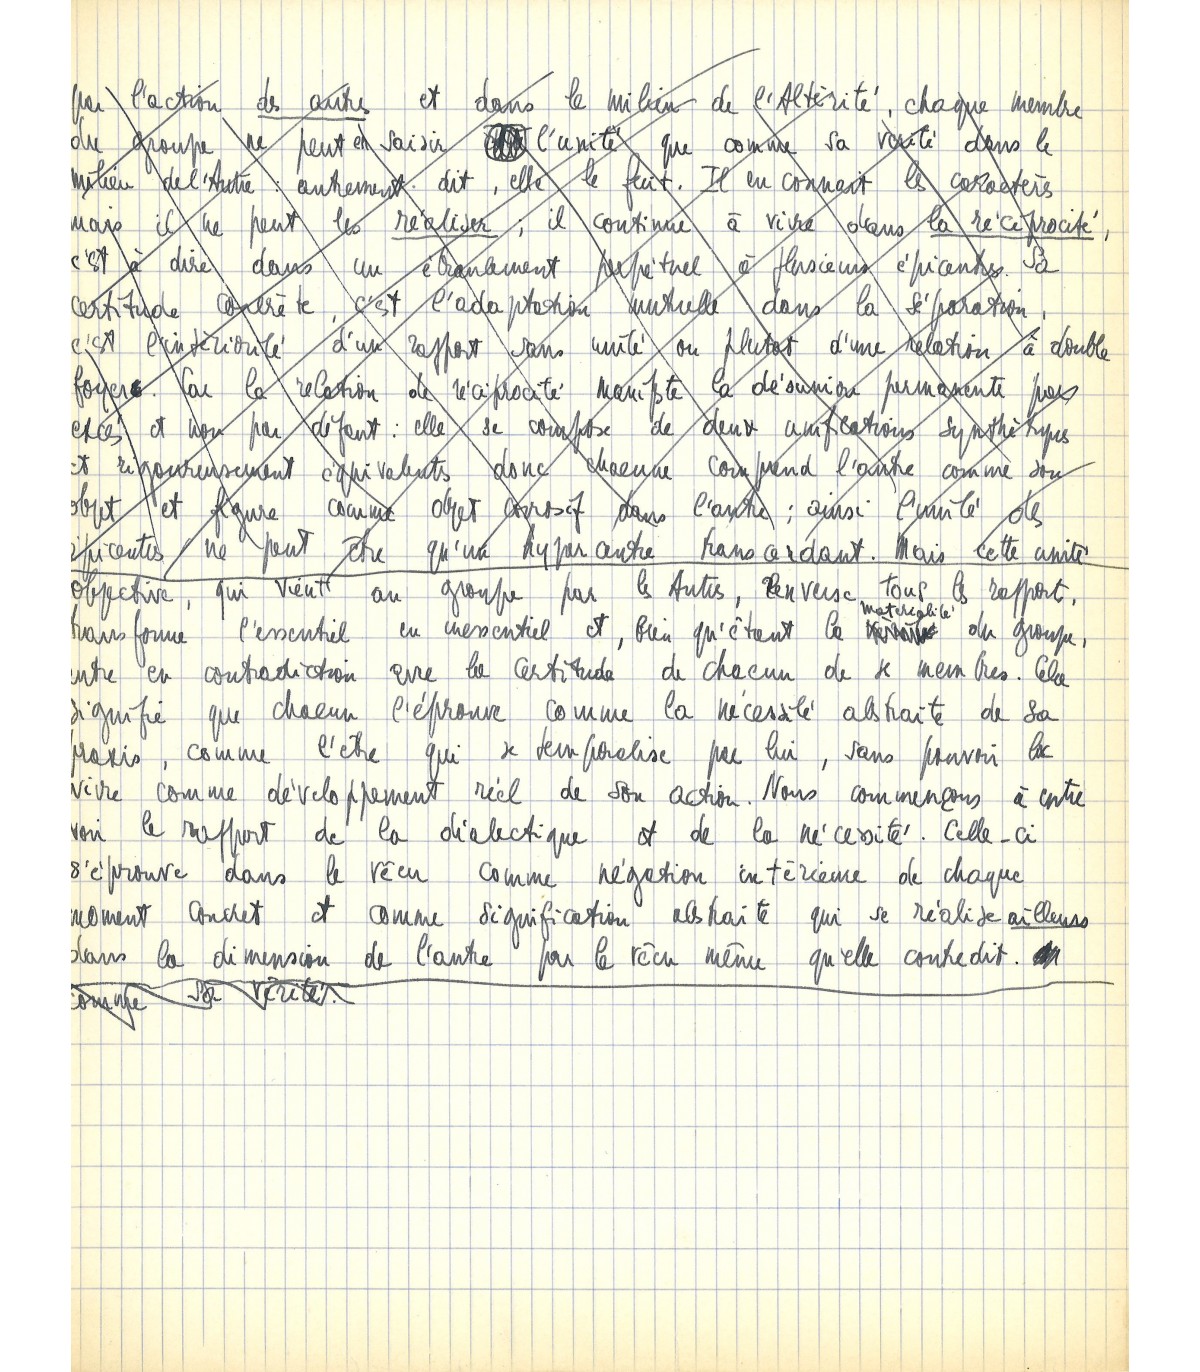 par l'action des autres et dans le milieu de l'Altérité, chaque membre
du groupe ne peut en saisir l'unité que comme sa vérité dans le
milieu de l'Autre : autrement dit, elle le fuit. Il en connait les caractères
mais il ne peut les réaliser ; il continue à vivre dans la réciprocité,
c'est à dire dans un ébranlement perpétuel à plusieurs épicentres. Sa
certitude concrète, c'est l'adaptation mutuelle dans la séparation,
c'est l'intériorité d'un rapport sans unité ou plutot d'une relation à double
foyers. Car la relation de réciprocité manifeste la désunion permanente par
excès et non par défaut : elle se compose de deux unifications synthétiques
et rigoureusement équivalents donc chacune comprend l'autre comme son
objet et figure comme objet corrosif dans l'autre ; ainsi l'unité des
épicentres ne peut être qu'un hyper centre transcendant. Mais cette unité
objective, qui vient au groupe par les Autres, renverse tous les rapport,
transforme l'essentiel en inessentiel et, bien qu'étant la matérialité du groupe,
entre en contradiction avec la certitude de chacun de se membres. Cela
signifie que chacun l'éprouve comme la nécessité abstraite de sa
praxis, comme l'être qui se temporalise par lui, sans pouvoir la
vivre comme développement réel de son action. Nous commençons à entre
voir le rapport de la dialectique et de la nécessité. Celle-ci
s'éprouve dans le vécu comme négation intérieure de chaque
moment concret et comme signification abstraite qui se réalise ailleurs
dans la dimension de l'autre par le vécu même qu'elle contredit.
comme sa vérité.